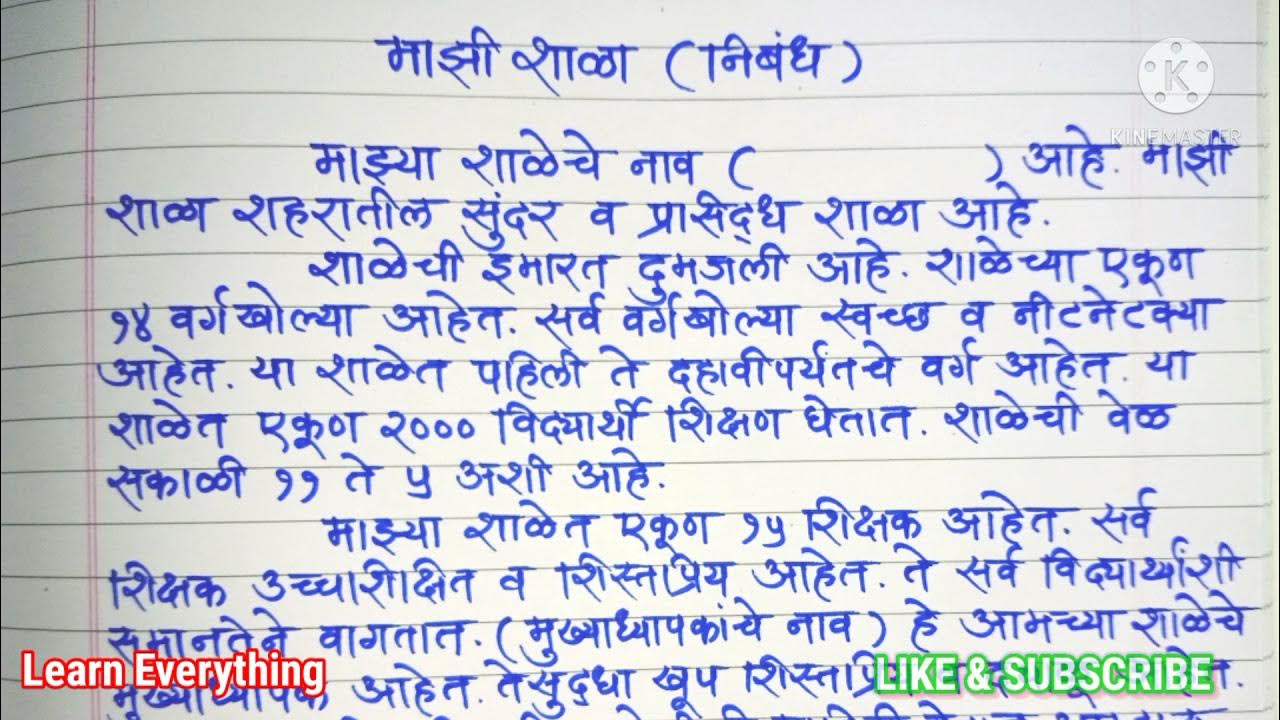 माझी शाळा (निबंध)
K
KINEMASTER
माझ्या शाळेचे नाव ( ) आहे. माझी
शाळा शहरातील सुंदर व प्रसिद्ध शाळा आहे.
शाळेची इमारत दुमजली आहे. शाळेच्या एकूण
१४ वर्गखोल्या आहेत. सर्व वर्गखोल्या स्वच्छ व नीटनेटक्या
आहेत. या शाळेत पहिली ते दहावीपर्यंतचे वर्ग आहेत. या
शाळेत एकूण २००० विद्यार्थी शिक्षण घेतात. शाळेची वेळ
सकाळी ११ ते ५ अशी आहे.
माझ्या शाळेत एकूण १५ शिक्षक आहेत. सर्व
शिक्षक उच्चशिक्षित व शिस्तप्रिय आहेत. ते सर्व विद्यार्थ्यांशी
समानतेने वागतात. (मुख्याध्यापकांचे नाव) हे आमच्या शाळेचे
मुख्याध्यापक आहेत. तेसुद्धा खूप
Learn Everything
LIKE & SUBSCRIBE